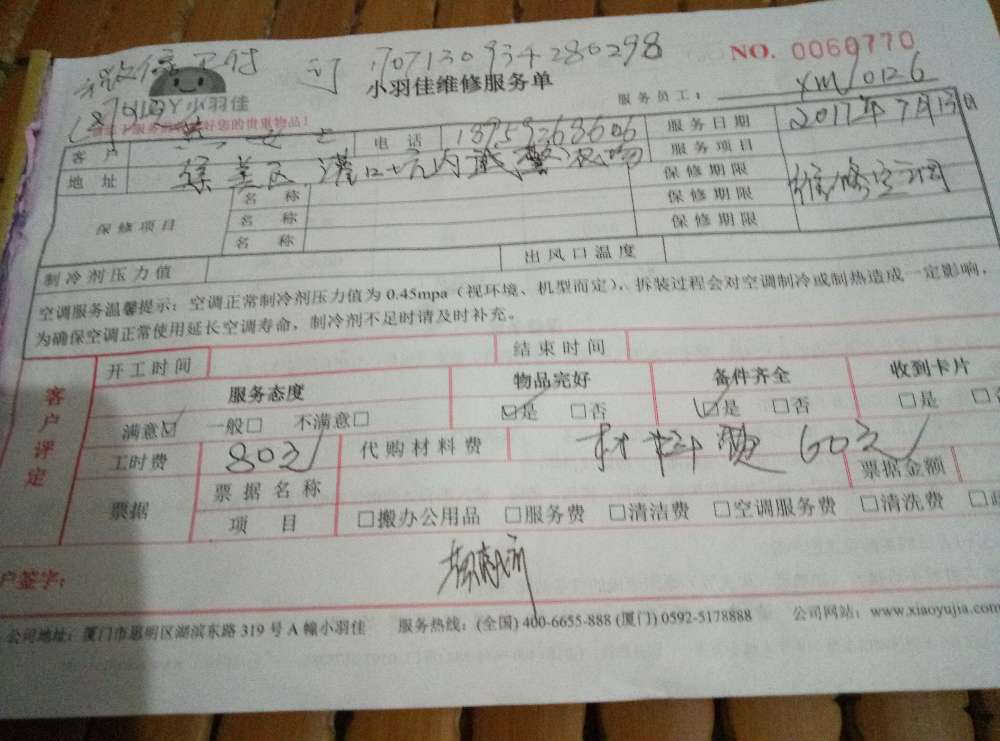 微信已付 订170713093428029​8 NO. 0060770
小羽佳 小羽佳维修服务单
服务员工: XM0126
客户 电话 18959268606 服务日期 2017年7月13日
地址 灌口坑内 服务项目 维修空调
保修项目 名称 保修期限
名称 保修期限
名称 保修期限
制冷剂压力值 出风口温度
空调服务温馨提示:空调正常制冷剂压力值为0.45mpa(视环境、机型而定)、拆装过程会对空调制冷或制热造成一定影响,
为确保空调正常使用延长空调寿命,制冷剂不足时请及时补充。
客户评定
开工时间 结束时间
服务态度 物品完好 备件齐全 收到卡片
满意☑ 一般□ 不满意□ ☑是 □否 ☑是 □否 □是 □
工时费 80元 代购材料费 材料费 60元
票据 票据名称 票据金额
项目 □搬办公用品 □服务费 □清洁费 □空调服务费 □清洗费 □
户签字:
公司地址:厦门市思明区湖滨东路319号A幢小羽佳 服务热线:(全国)400-6655-888 (厦门)0592-5178888 公司网站:www.xiaoyujia.com